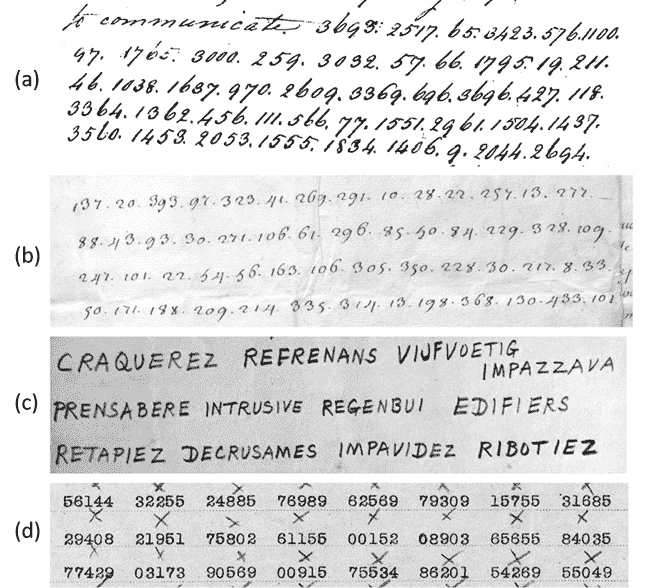 to communicate 3693. 2517. 65. 3423. 576. 1100.
(a)
97. 1765. 3000. 259. 3032. 57. 66. 1795. 19. 211.
46. 1038. 1637. 970. 2609. 3369. 696. 3696. 427. 118.
3364. 1362. 456. 111. 566. 77. 1551. 2961. 1504. 1437.
3560. 1453. 2053. 1555. 1834. 1406. 9. 2044. 2694.
137. 20. 393. 97. 323. 41. 269. 291. 10. 28. 22. 257. 13. 277.
(b)
88. 43. 93. 30. 271. 106. 61. 296. 85. 50. 84. 229. 328. 109.
247. 101. 22. 54. 56. 163. 106. 305. 350. 228. 30. 217. 8. 33.
50. 171. 188. 209. 214. 335. 314. 13. 198. 368. 130. 433. 101
CRAQUEREZ REFRENANS VIJFVOETIG
IMPAZZAVA
(c)
PRENSABERE INTRUSIVE REGENBUI EDIFIERS
RETAPIEZ DECRUSAMES IMPAVIDEZ RIBOTIEZ
56144 32255 24885 76989 62569 79309 15755 31685
(d)
29408 21951 75802 61155 00152 08903 65655 84035
77429 03173 90569 00915 75534 86201 54269 55049